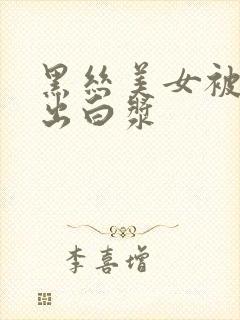 黑丝美女被
出白浆
李喜增